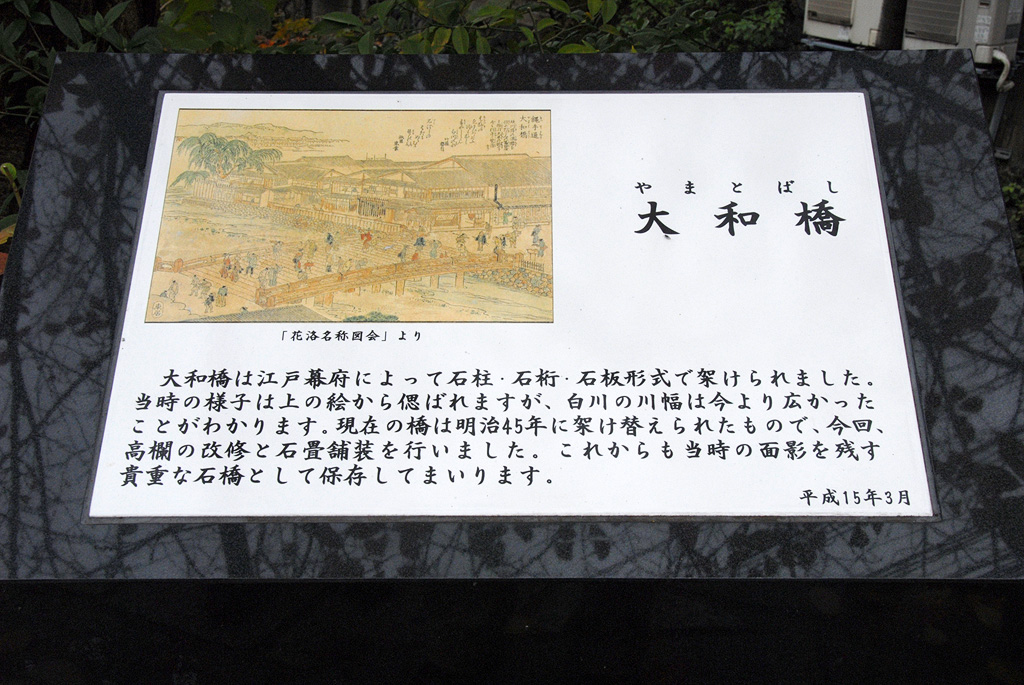 やまとばし
大和橋
縄手通
大和橋
「花洛名称図会」より
大和橋は江戸幕府によって石柱・石桁・石板形式で架けられました。
当時の様子は上の絵から偲ばれますが、白川の川幅は今より広かった
ことがわかります。現在の橋は明治45年に架け替えられたもので、今回、
高欄の改修と石畳舗装を行いました。これからも当時の面影を残す
貴重な石橋として保存してまいります。
平成15年3月